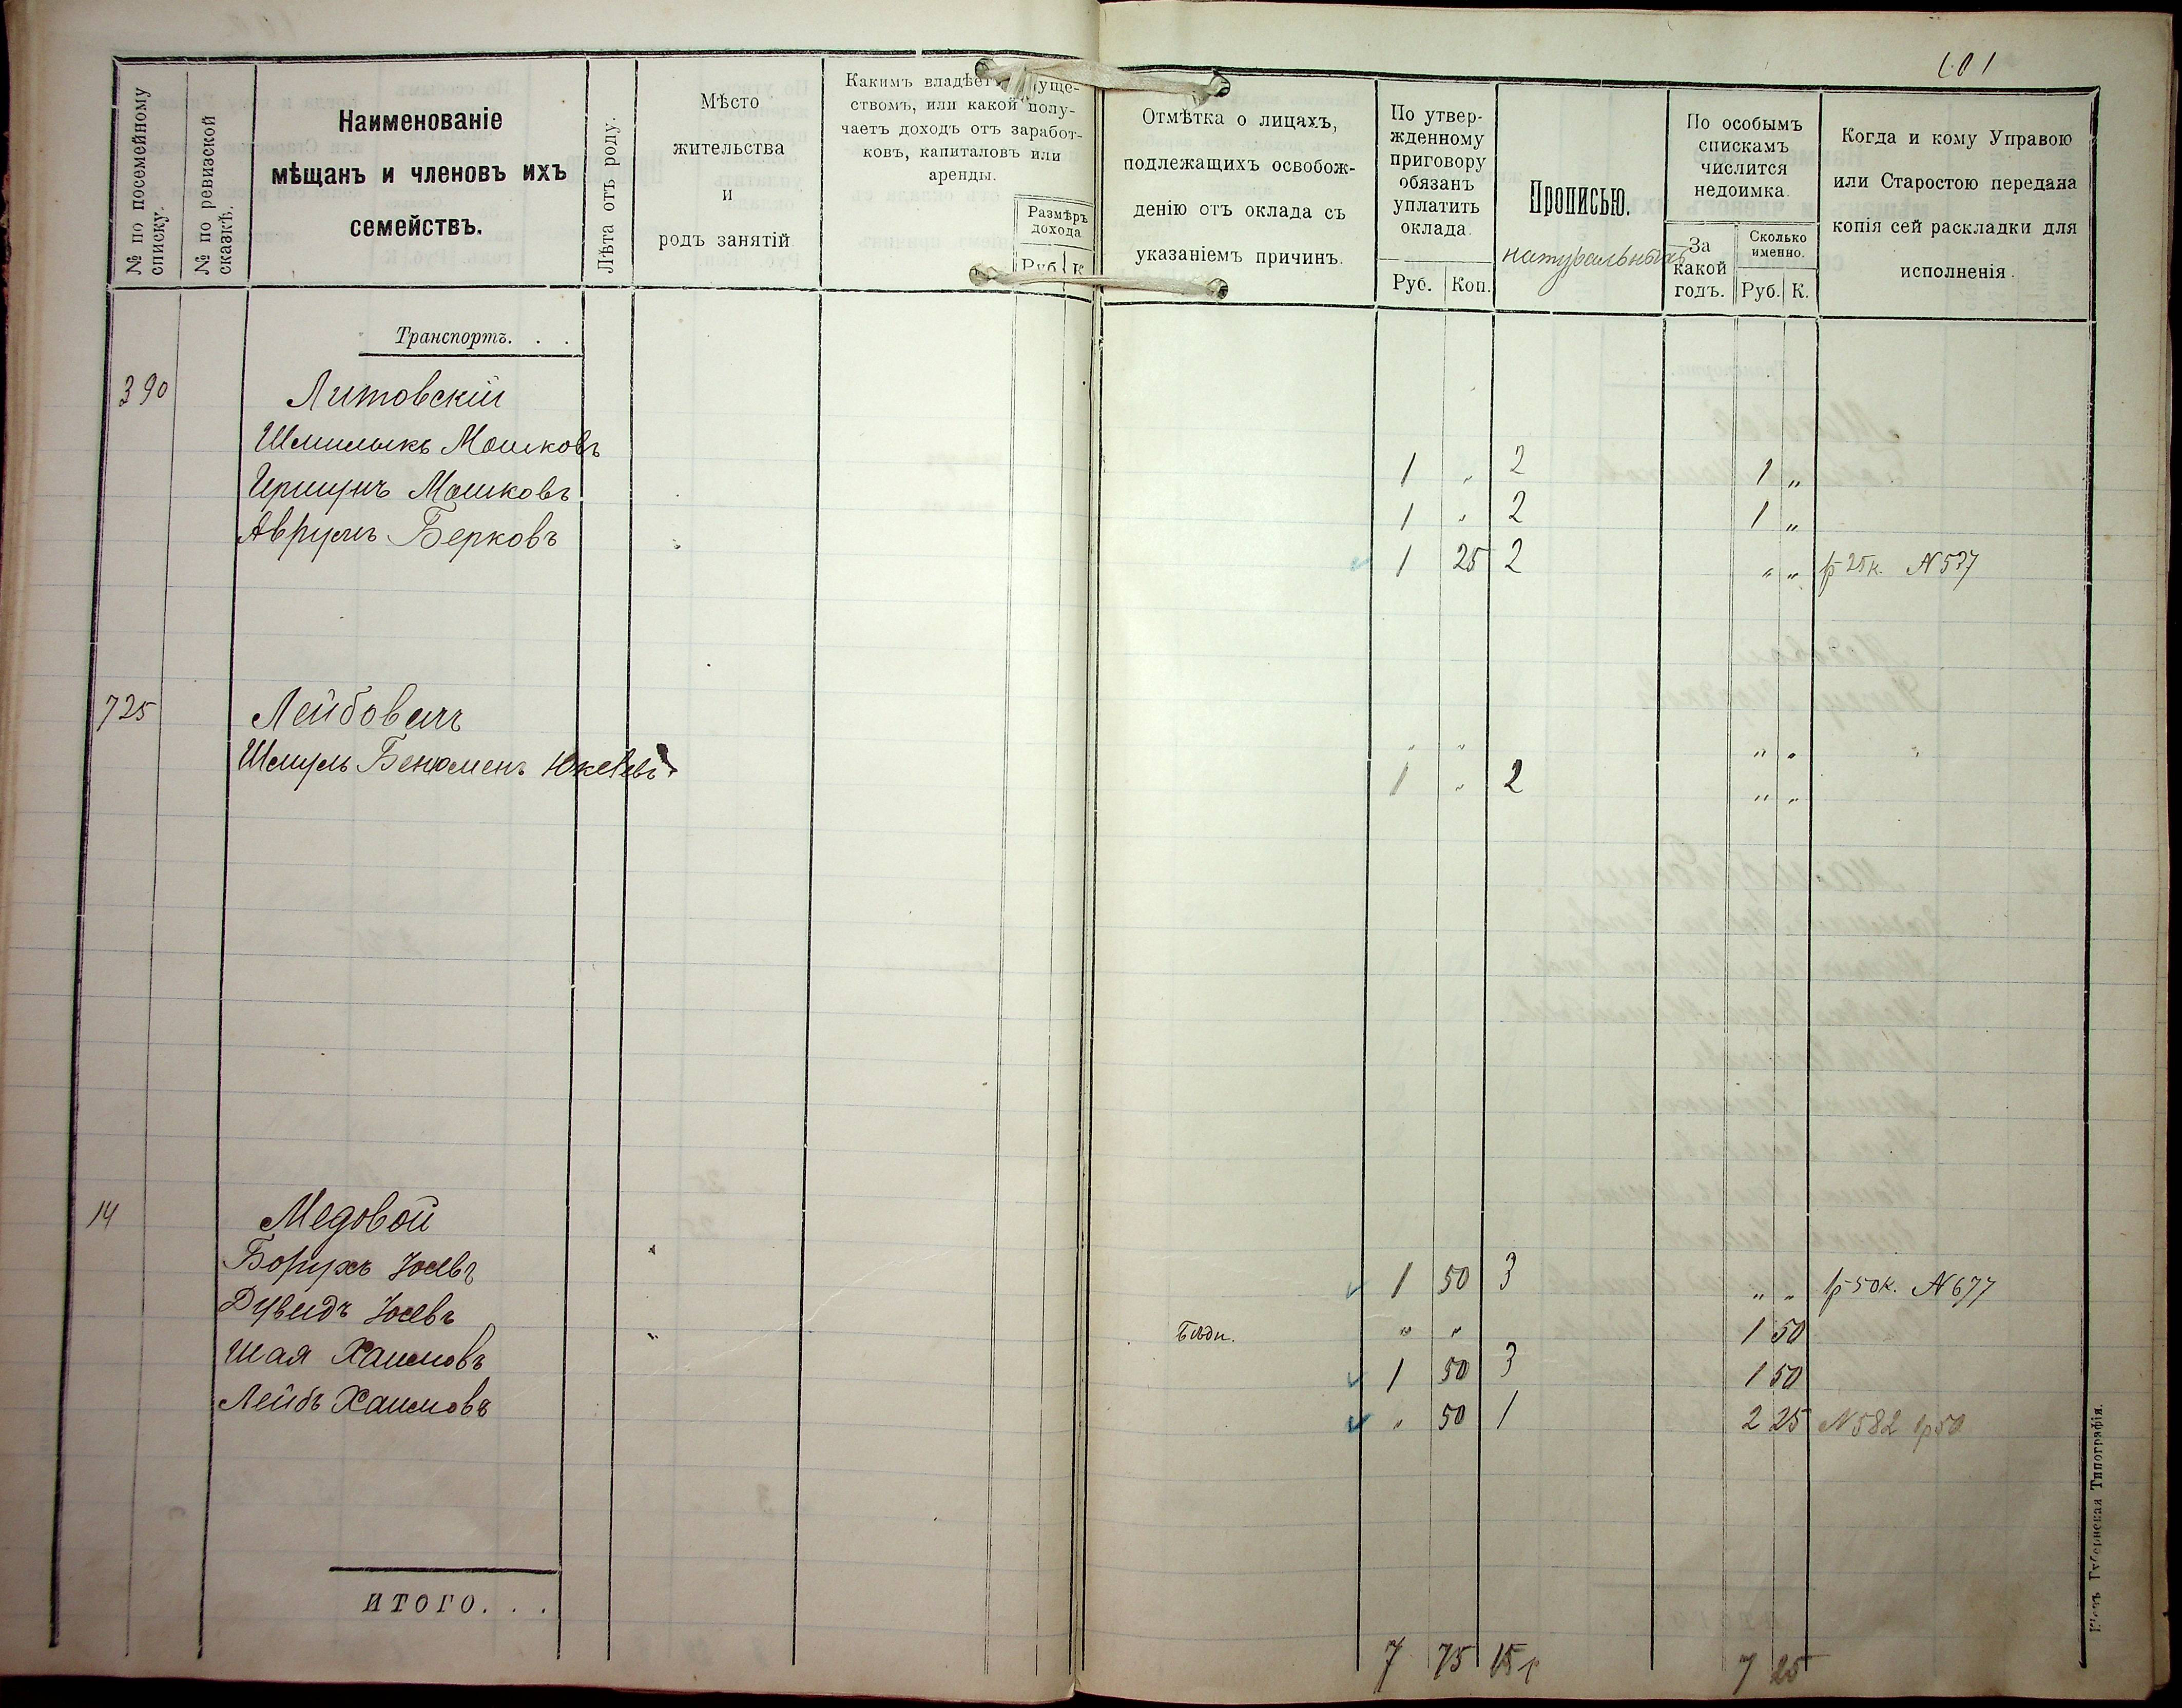 101
№ по посемейному списку.
№ по ревизской сказкѣ.
Наименованіе
мѣщанъ и членовъ ихъ
семействъ.
Лѣта отъ роду.
Мѣсто
жительства
и
родъ занятій
Какимъ владѣетъ
ствомъ, или какой полу-
чаетъ доходъ отъ заработ-
ковъ, капиталовъ или
аренды.
Размѣръ
дохода
Руб. К
Отмѣтка о лицахъ,
подлежащихъ освобож-
денію отъ оклада съ
указаніемъ причинъ.
По утвер-
жденному
приговору
обязанъ
уплатить
оклада.
Руб. Коп.
Прописью.
По особымъ
спискамъ
числится
недоимка.
За
какой
годъ.
Сколько
именно.
Руб. К.
Когда и кому Управою
или Старостою передана
копія сей раскладки для
исполненія.
Транспортъ. . .
390 Литовскій
Шмилыкъ Мошковъ 1 „ 2 1 „
Мошковъ 1 „ 2 1 „
Аврумъ Берковъ 1 25 2 „ „ 1р 25к. N 537
725 Лейбовичъ „ „ „ „
Шмуль Бенюменъ 1 „ 2 „ „
14 Медовой
Борухъ Іосевъ 1 50 3 „ „ 1р 50к. N 677
Дувидъ Іосевъ Бѣдн. „ „ 1 50
Шая Хаимовъ 1 50 3 1 50
Лейбъ Хаимовъ „ 50 1 2 25 N 582 1р 50
ИТОГО. . .
7 75 15 7 25
Губернская Типографія.